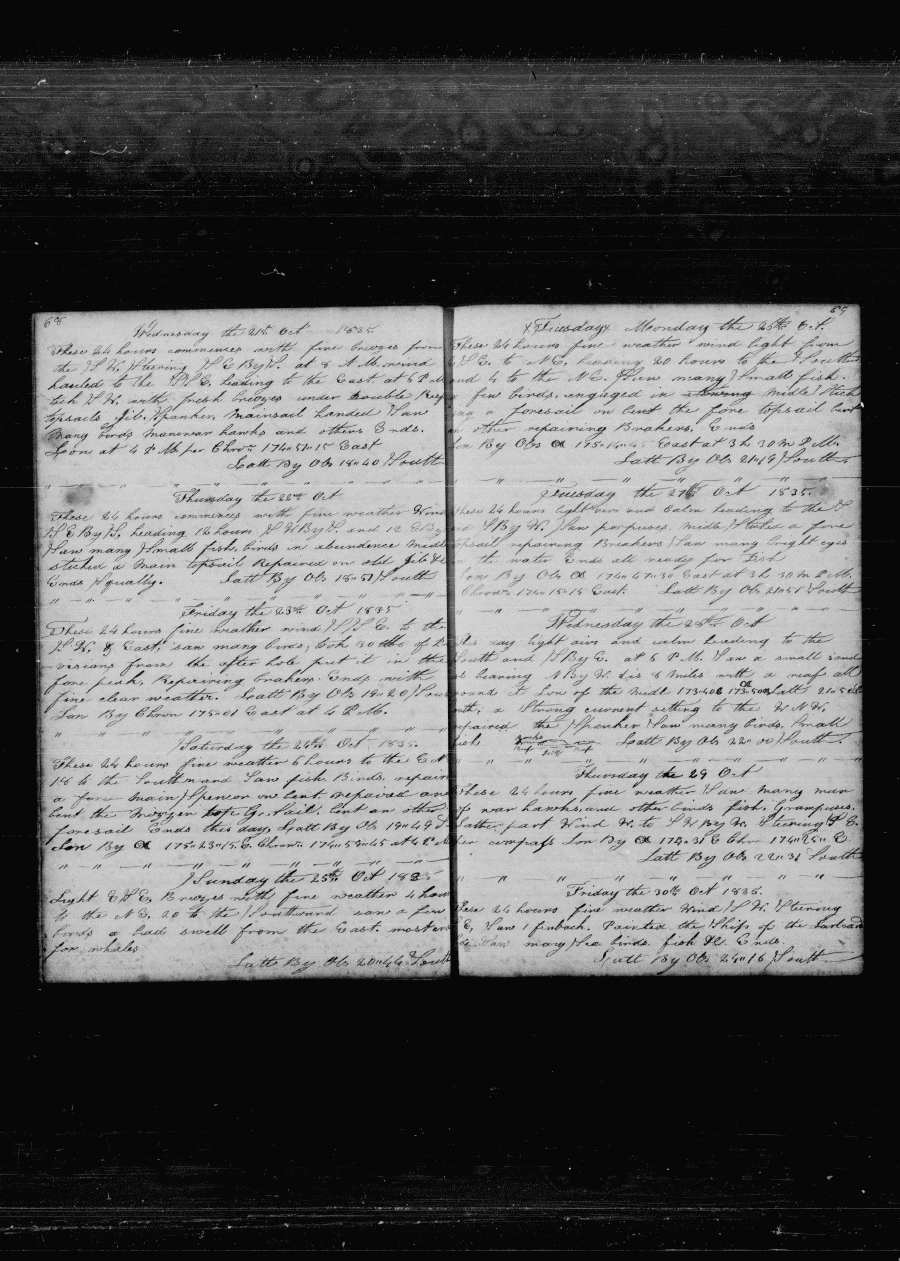 68
Wednesday the 21st Oct 1835
These 24 hours commences with fine breezes from
the S.W. Stering S E By S. at 8 A M. wind
hauled to the S.S.E. heading to the East at 6 P M
tack S W. with fresh breezes under Double Reef
topsails Jib. Spanker, Mainsail handed Saw
many birds manowar hawks and others Ends.
Lon at 4 P M. per Chron 174"51"15 East
Latt By Obs 18"40 South
Thursday the 22nd Oct
These 24 hours commences with fine weather Wind
S E By S, heading 12 hours S W By S. and 12 E By
Saw many Small fish, birds in abundence Midl
stiched a Main topsail Repaired an old Jib &c
Ends Squally. Latt By Obs 18"51 South
Friday the 23rd Oct 1835
These 24 hours fine weather wind S S E. to the
S. W. & East, saw many birds, took 30 bbls of Pr
visions from the after hole put it in the
fore peak, Repairing braken. Ends with
fine clear weather. Latt By Obs 19"20 Sou
Lon By Chron 175"01 East at 4 P. M.
Saturday the 24th Oct 1835.
These 24 hours fine weather 6 hours to the East
18 to the Southward Saw fish Birds. repair
a fore Main Spencer on bent repaired an
bent the Mizzen top G. Sail. bent an other
foresail Ends this day, Latt By Obs 19"49 S
Lon By 175"23"15 E. Chron 174"58"45 at 4 P M
Sunday the 25th Oct 1835
Light E S E Breezes with fine weather 4 hou
to the N E, 20 to the Southward saw a few
birds a bad swell from the East. masters
for whales
Latt By Obs 20"44 South
69
Tuesday Moonday the 26th Oct.
These 24 hours fine weather wind light from
S E. to N E. heading 20 hours to the South
and 4 to the N E. Saw many Small fish.
a few birds. engaged in Midle Stich
ing a foresail on bent the fore topsail bent
an other repairing Brakers, Ends
Lon By Obs 175"14"45 East at 3 h 30 m P M.
Latt By Obs 21"19 South
Tuesday the 27th Oct 1835.
These 24 hours light airs and Calm heading to the S
and S By W. Saw porpuses Midle Stiched a fore
topsail repairing Breakers Saw many bright eyes
in the water Ends all ready for Fish
Lon By Obs 174"47"30 East at 3 h 30 m P M.
Chron 174"15"15 East. Latt By Obs 21"51 South
Wednesday the 28th Oct
This day light airs and calm heading to the
South and S By E. at 6 P M. Saw a small sand
bearing N By W. Dis 8 miles with a reaf all
round it Lon of the Midl 173"40 E Latt 21"50
a Strong current setting to the W N W.
repaired the Spenker Saw many birds, Small
fish Latt By Obs 22"00 South
Thursday the 29 Oct
These 24 hours fine weather Saw many man
of war hawks, and other birds fish, Grampuses.
Latter part Wind W. to S W By W. Stering S E.
per compass Lon By 175"31 E Chron 174"25" E.
Latt By Obs 22"31 South
Friday the 30th Oct 1835.
These 24 hours fine weather Wind S W. Stering
E, Saw 1 finback. Painted the Ship of the larboard
Saw many Sea birds. fish &c. Ends.
Latt By Obs 24"16 South